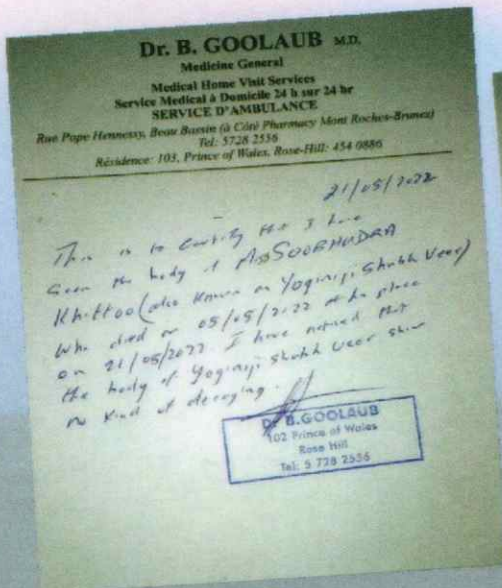 Dr. B. GOOLAUB M.D.
Medicine General
Medical Home Visit Services
Service Medical à Domicile 24 h sur 24 hr
SERVICE D'AMBULANCE
Rue Pope Hennessy, Beau Bassin (à Côté Pharmacy Mont Roches-Brunea)
Tel: 5728 2556
Résidence: 103, Prince of Wales, Rose-Hill: 454 0886
21/05/2022
This is to certify that I have
seen the body of SOOBHUDRA
Khittoo (also known as Yoginiji Shubh Veer)
who died on 05/05/2022 at place
on 21/05/2022. I have noticed that
the body of Yoginiji Shubh Veer show
no kind of decaying.
Dr B.GOOLAUB
102 Prince of Wales
Rose Hill
Tel: 5 728 2556